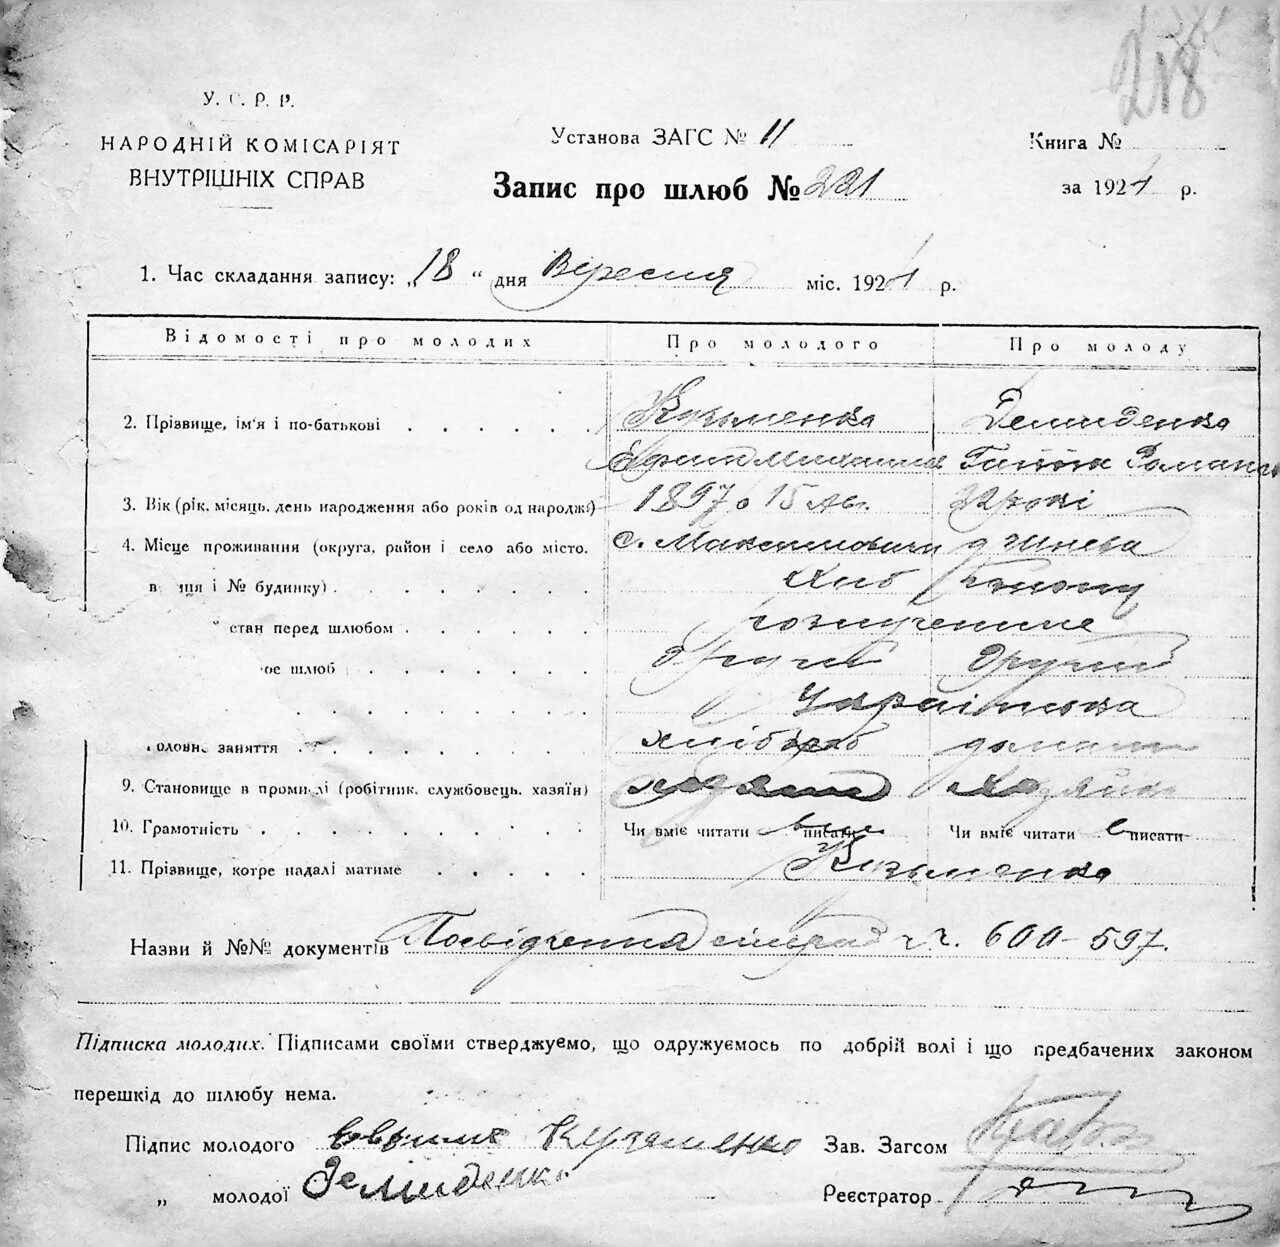 218
У. С. Р. Р.
НАРОДНІЙ КОМІСАРІЯТ
ВНУТРІШНІХ СПРАВ
Установа ЗАГС № 11
Запис про шлюб № 221
Книга №
за 1924 р.
1. Час складання запису: „18“ дня Вересня міс. 1924 р.
Відомості про молодих Про молодого Про молоду
2. Прізвище, ім'я і по-батькові Кузьменко Демиденко
Ганна Роман
3. Вік (рік, місяць, день народження або років од народж.) 1897 о 15 Авг. 22 роки
4. Місце проживання (округа, район і село або місто, с. Максимович
в ця і № будинку)
стан перед шлюбом розлучение
ос шлюб другий другий
Українська
головн. заняття хлібороб домашн
9. Становище в промислі (робітник, службовець, хазяїн) хазяїн Хазяйка
10. Грамотність Чи вміє читати писати Чи вміє читати писати
11. Прізвище, котре надалі матиме Кузьменко
Назви й №№ документів Посвідчення 600-597.
Підписка молодих. Підписами своїми стверджуємо, що одружуємось по добрій волі і що предбачених законом
перешкід до шлюбу нема.
Підпис молодого Кузьменко Зав. Загсом
„ молодої Демиденко Реєстратор